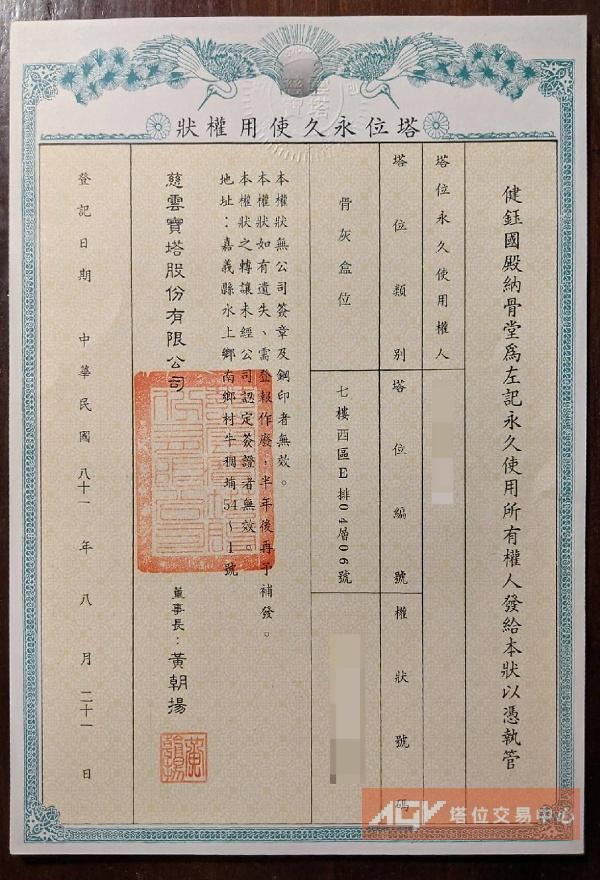 塔位永久使用權狀
健鈺國殿納骨堂爲左記永久使用所有權人發給本狀以憑執管
塔位永久使用權人
塔位類別
塔位編號
權狀號碼
骨灰盒位
七樓西區E排04層06號
本權狀無公司簽章及鋼印者無效。
本權狀如有遺失、需登報作廢，半年後再予補發。
本權狀之轉讓未經公司認定簽證者無效。
地址：嘉義縣水上鄉南鄉村牛稠埔54～1號
慈雲寶塔股份有限公司
董事長：黃朝揚
登記日期 中華民國 八十一 年 八 月 二十一 日
AGV 塔位交易中心